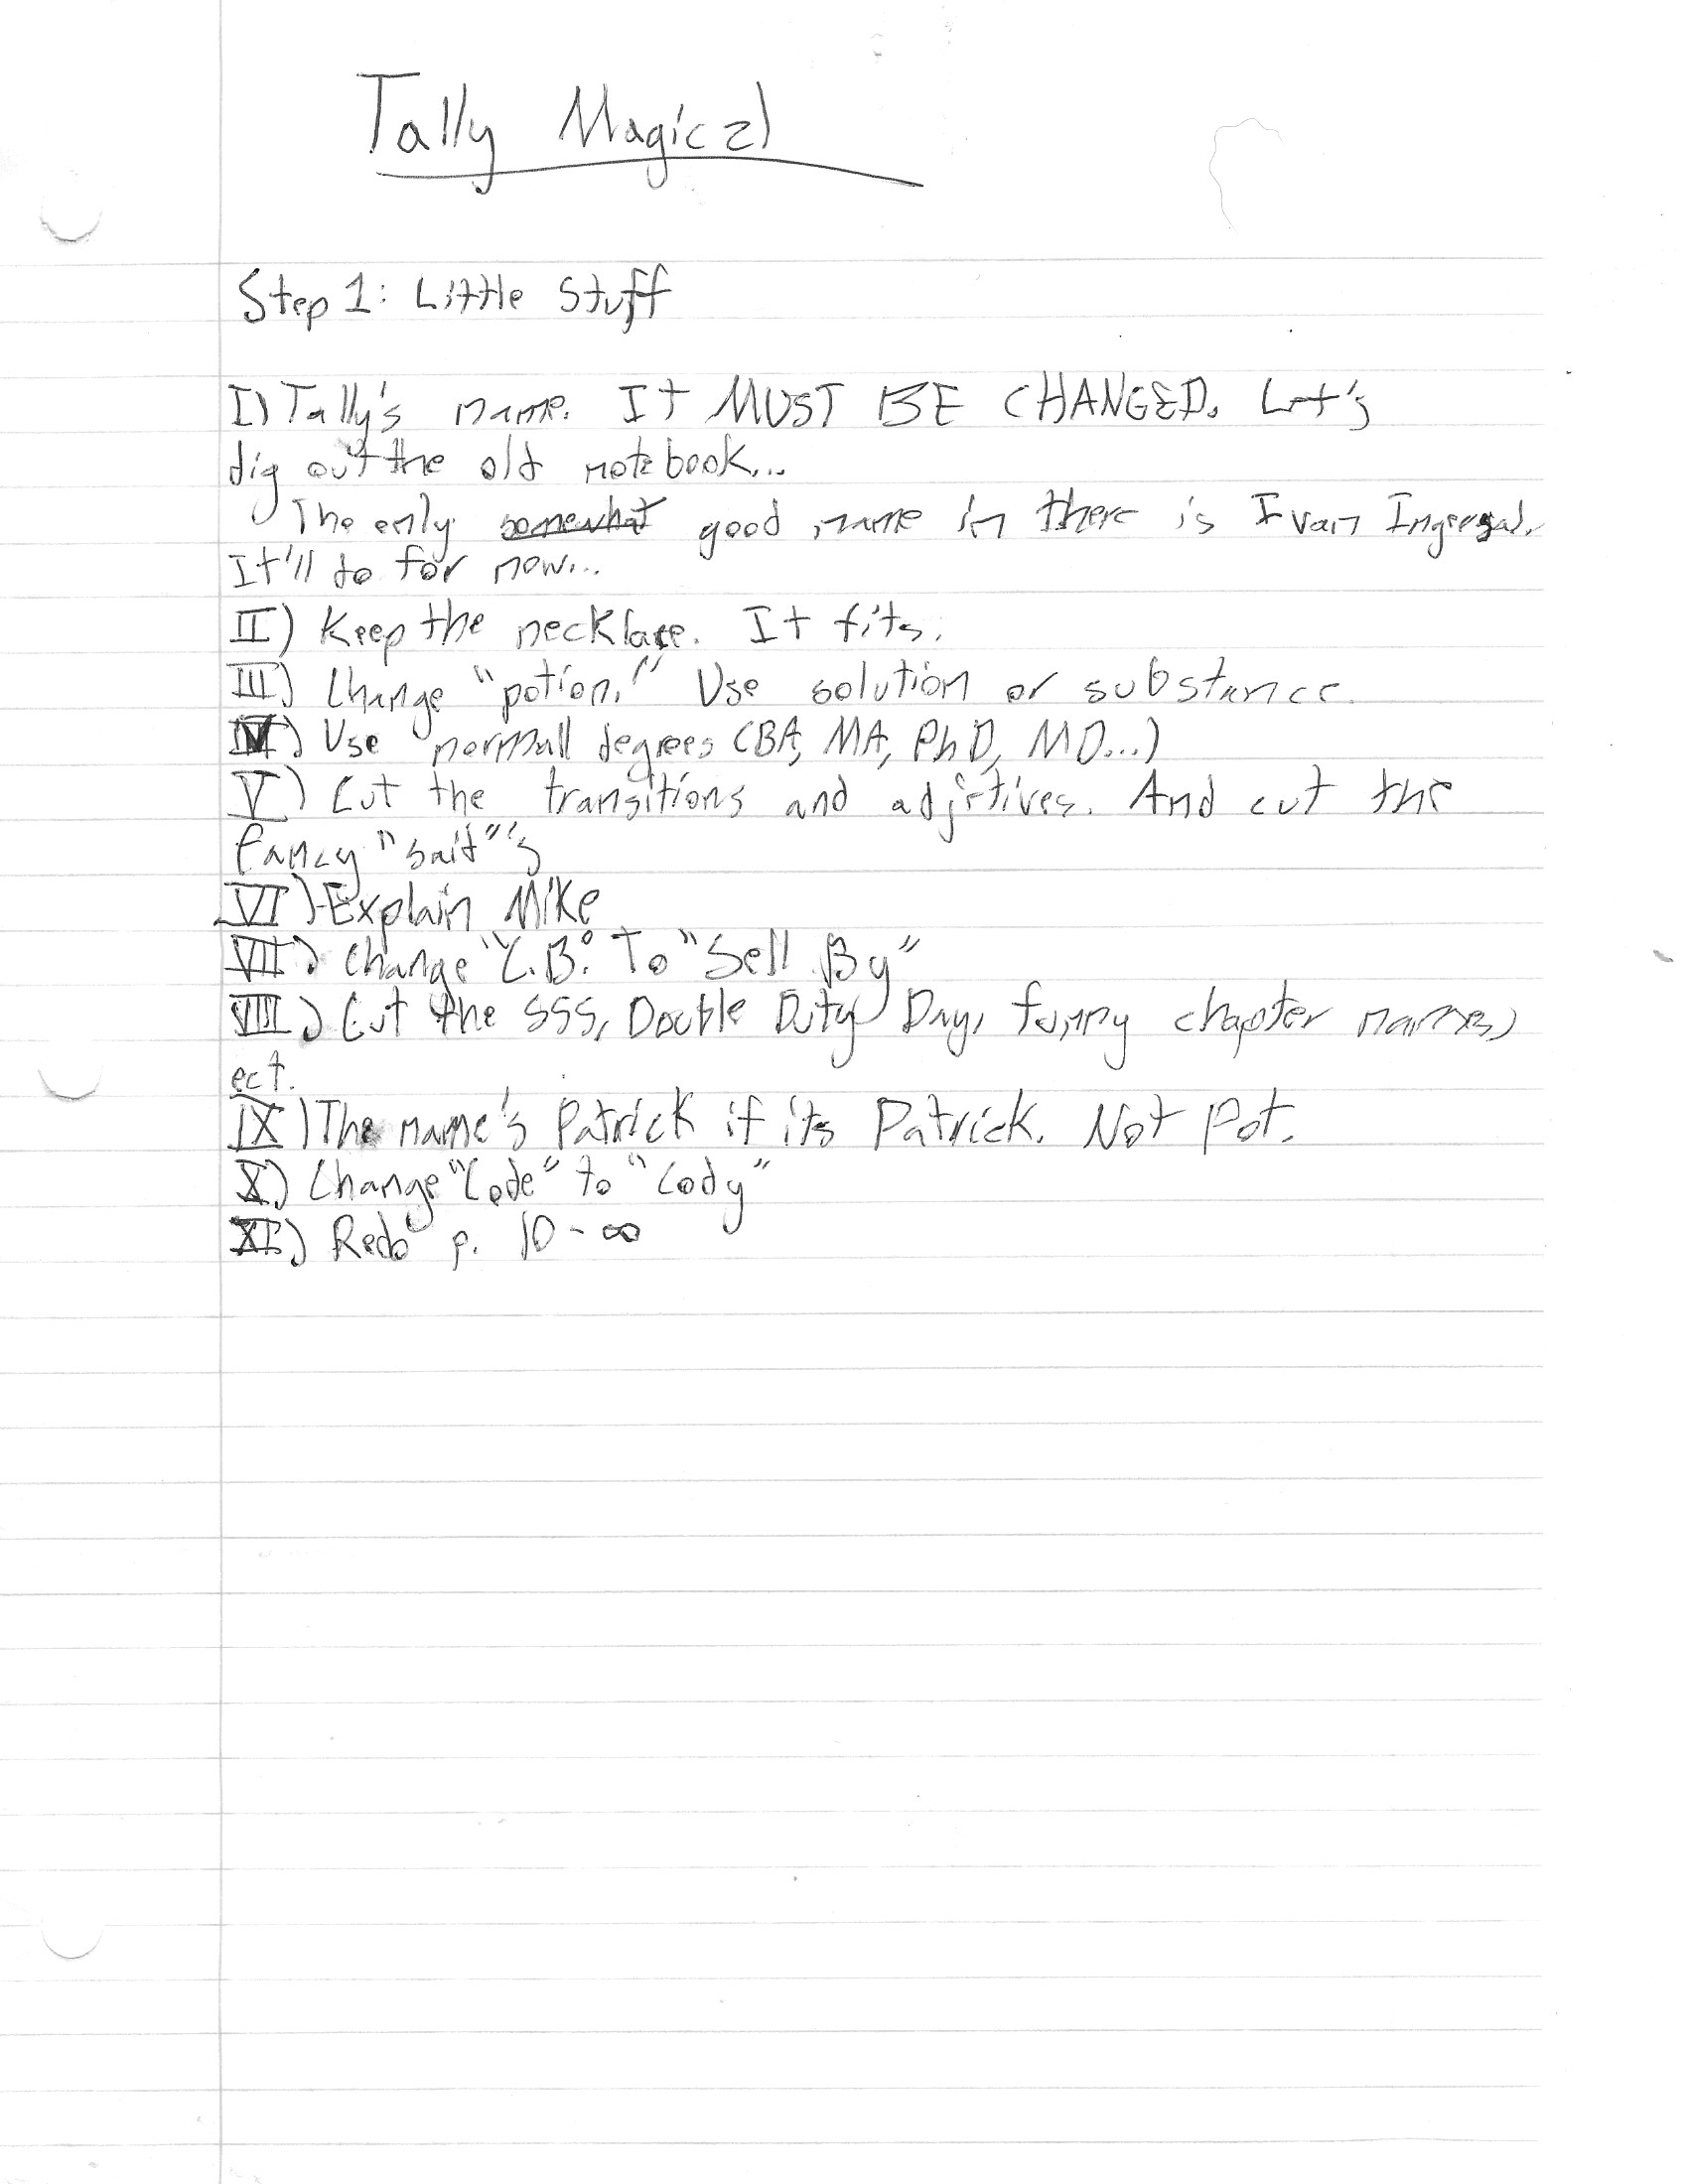 Tally Magical
Step 1: Little Stuff
I) Tally's name. It MUST BE CHANGED. Let's
dig out the old notebook...
The only somewhat good name in there is Ivan
It'll do for now...
II) Keep the necklace. It fits.
III) Change "potion." Use solution or substance.
IV) Use normall degrees (BA, MA, PhD, MD...)
V) Cut the transitions and adjetives. And cut the
fancy "said"'s
VI) Explain Mike
VII) Change "C.B." To "Sell By"
VIII) Cut the SSS, Double Duty Day, funny chapter names,
ect.
IX) The name's Patrick if its Patrick. Not Pat.
X) Change "Code" to "Cody"
XI) Redo p. 10-∞